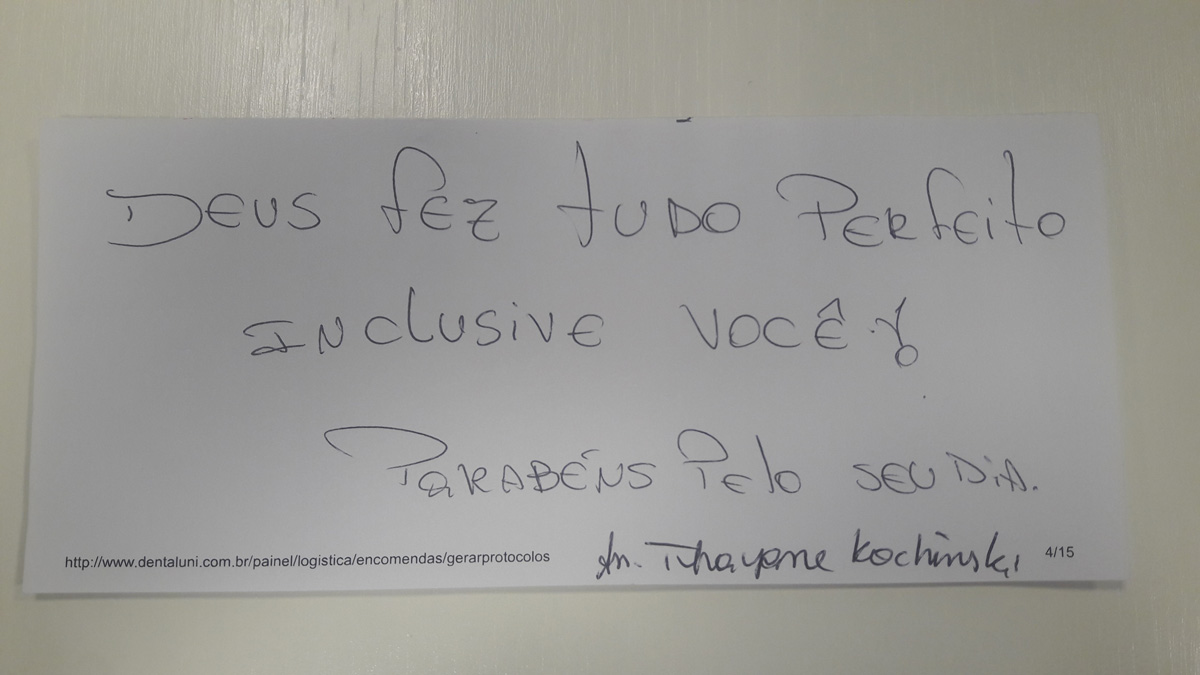 DEUS fEZ tUDO PERfEito
INClUSivE VOCÊ!
PARABÉNS PElo SEU DiA.
http://www.dentaluni.com.br/painel/logistica/encomendas/gerarprotocolos
Thayane Kochinski 4/15